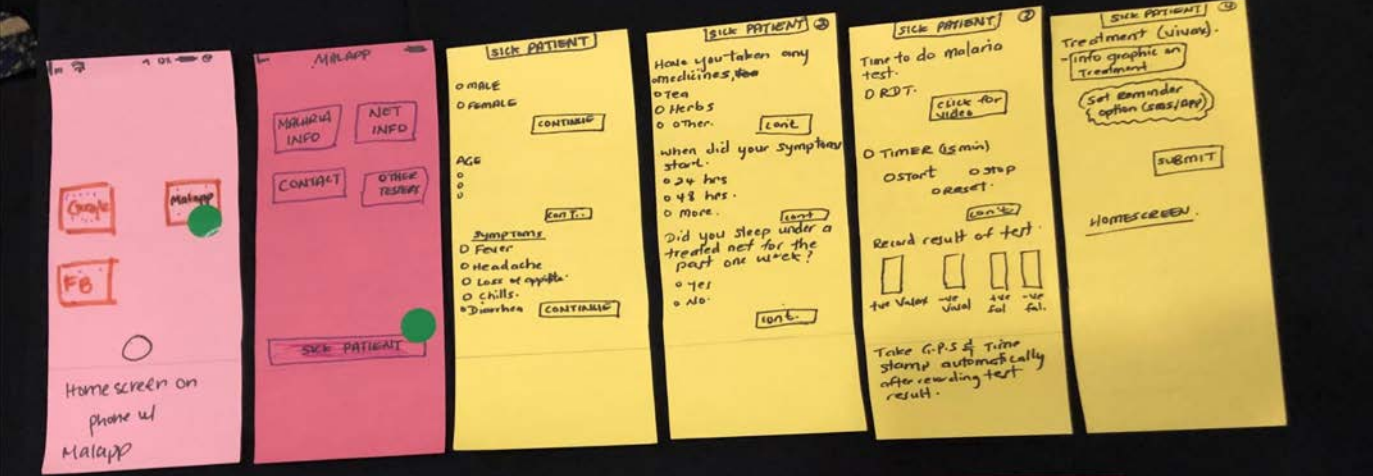 Google
Malapp
FB
Home screen on
phone w/
Malapp
MALAPP
MALARIA
INFO
NET
INFO
CONTACT
OTHER
TESTERS
SICK PATIENT
SICK PATIENT
O MALE
O FEMALE
CONTINUE
AGE
O
O
O
CONT..
Symptoms
O Fever
O Headache
O Loss of
O Chills.
O Diarrhea
CONTINUE
SICK PATIENT 2
Have you taken any
medicines,
O Tea
O Herbs
O OTher.
Cont
When did your symptoms
start.
O 24 hrs
O 48 hrs.
O more.
cont
Did you sleep under a
treated net for the
past one week?
O yes
O No.
cont.
SICK PATIENT 3
Time to do malaria
test.
O RDT.
click for
video
O TIMER (15 min)
O Start O Stop
O Reset.
Con't
Record result of test.
+ve -ve +ve -ve
fal fal.
Take G.P.S & Time
stamp automatically
after recording test
result.
SICK PATIENT 4
Treatment (vivax).
- info graphic on
Treatment
Set reminder
option (SMS/App)
SUBMIT
HOMESCREEN.